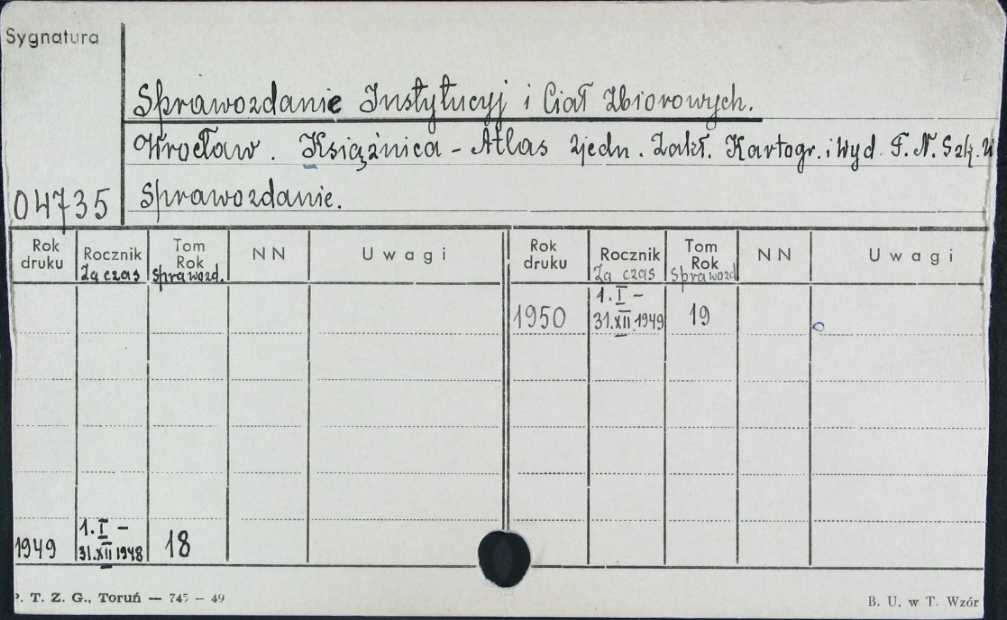 Sygnatura
Sprawozdanie Instytucyj i Ciał Zbiorowych.
Wrocław. Książnica - Atlas Zjedn. Zakł. Kartogr. i Wyd. T. N. Szk. W
04735 Sprawozdanie.
Rok druku Rocznik Za czas Tom Rok sprawozd. NN Uwagi Rok druku Rocznik Za czas Tom Rok sprawozd NN Uwagi
1950 1.I - 31.XII.1949 19
1949 1.I - 31.XII 1948 18
P. T. Z. G., Toruń — 745 — 49 B. U. w T. Wzór